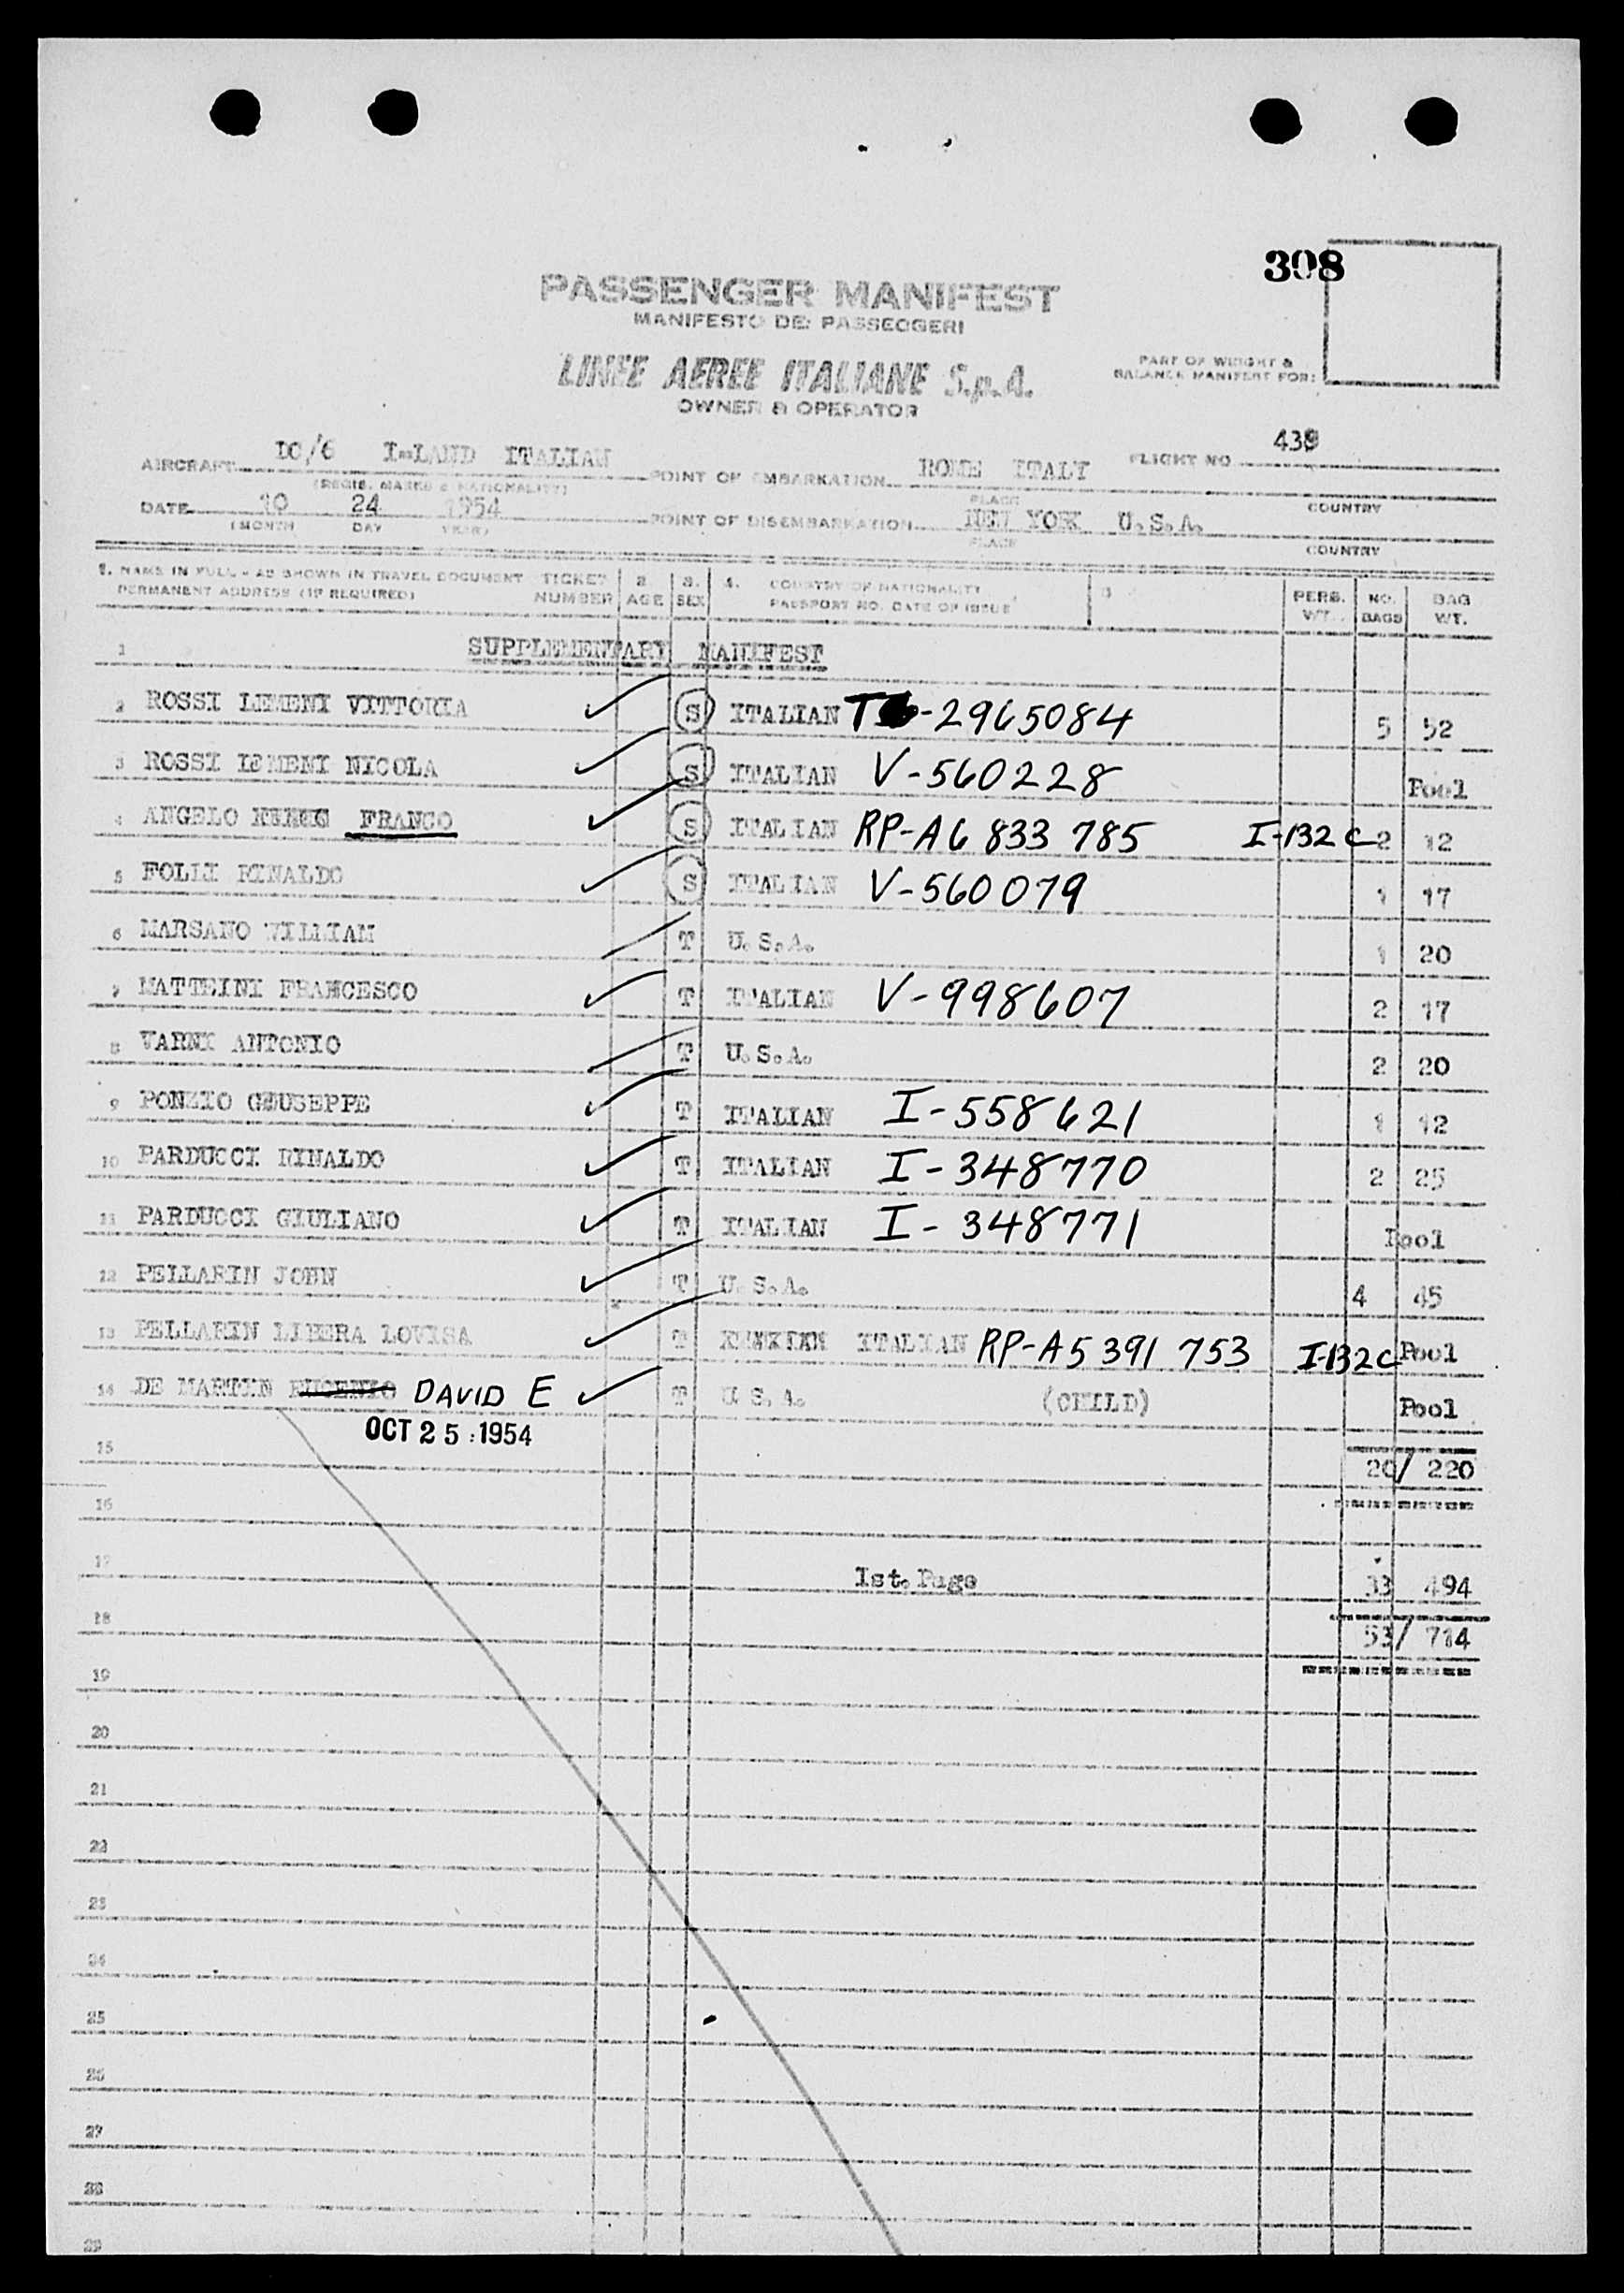 308
PASSENGER MANIFEST
MANIFESTO DEI PASSEGGERI
LINEE AEREE ITALIANE S.p.A.
OWNER & OPERATOR
PART OF WEIGHT &
BALANCE MANIFEST FOR:
AIRCRAFT DC/6 I-LAND ITALIAN POINT OF EMBARKATION ROME ITALY FLIGHT NO 439
(REGIS. MARKS & NATIONALITY) PLACE COUNTRY
DATE 10 24 1954 POINT OF DISEMBARKATION NEW YORK U.S.A.
(MONTH DAY YEAR) PLACE COUNTRY
1. NAME IN FULL - AS SHOWN IN TRAVEL DOCUMENT TICKET 2. 3. 4. COUNTRY OF NATIONALITY 5 PERS. NO. BAG
PERMANENT ADDRESS (IF REQUIRED) NUMBER AGE SEX PASSPORT NO. DATE OF ISSUE WT. BAGS WT.
1 SUPPLEMENTARY MANIFEST
2 ROSSI LEMENI VITTORIA S ITALIAN -2965084 5 52
3 ROSSI LEMENI NICOLA S ITALIAN V-560228 Pool
4 ANGELO FRANCO S ITALIAN RP-A6 833 785 I-132 C 2 12
5 FOLLI RINALDO S ITALIAN V-560079 1 17
6 MARSANO WILLIAM T U.S.A. 1 20
7 MATTEINI FRANCESCO T ITALIAN V-998607 2 17
8 VARNI ANTONIO T U.S.A. 2 20
9 PONZIO GIUSEPPE T ITALIAN I-558621 1 12
10 PARDUCCI RINALDO T ITALIAN I-348770 2 25
11 PARDUCCI GIULIANO T ITALIAN I-348771 Pool
12 PELLARIN JOHN T U.S.A. 4 45
13 PELLARIN LIBERA LOVISA T ITALIAN RP-A5 391 753 I-132C Pool
14 DE MARTIN EUGENIO DAVID E T U.S.A. (CHILD) Pool
OCT 25 1954
15 20/ 220
16
17 Ist. Page 33 494
18 53/ 714
19
20
21
22
23
24
25
26
27
28
29